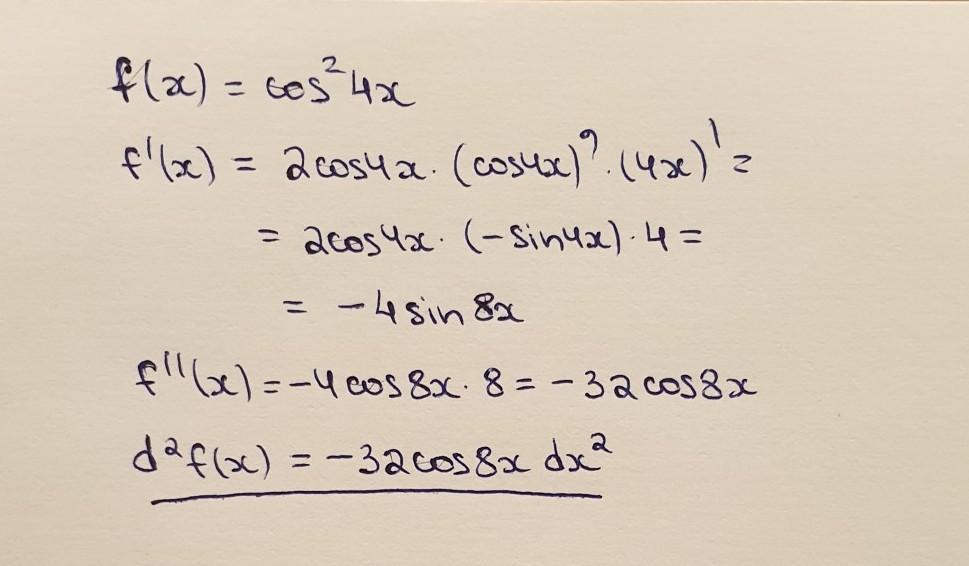 f(x) = cos²4x
f'(x) = 2cos4x · (cos4x)' · (4x)' =
= 2cos4x · (-sin4x) · 4 =
= -4 sin 8x
f''(x) = -4 cos 8x · 8 = -32 cos8x
d²f(x) = -32cos8x dx²